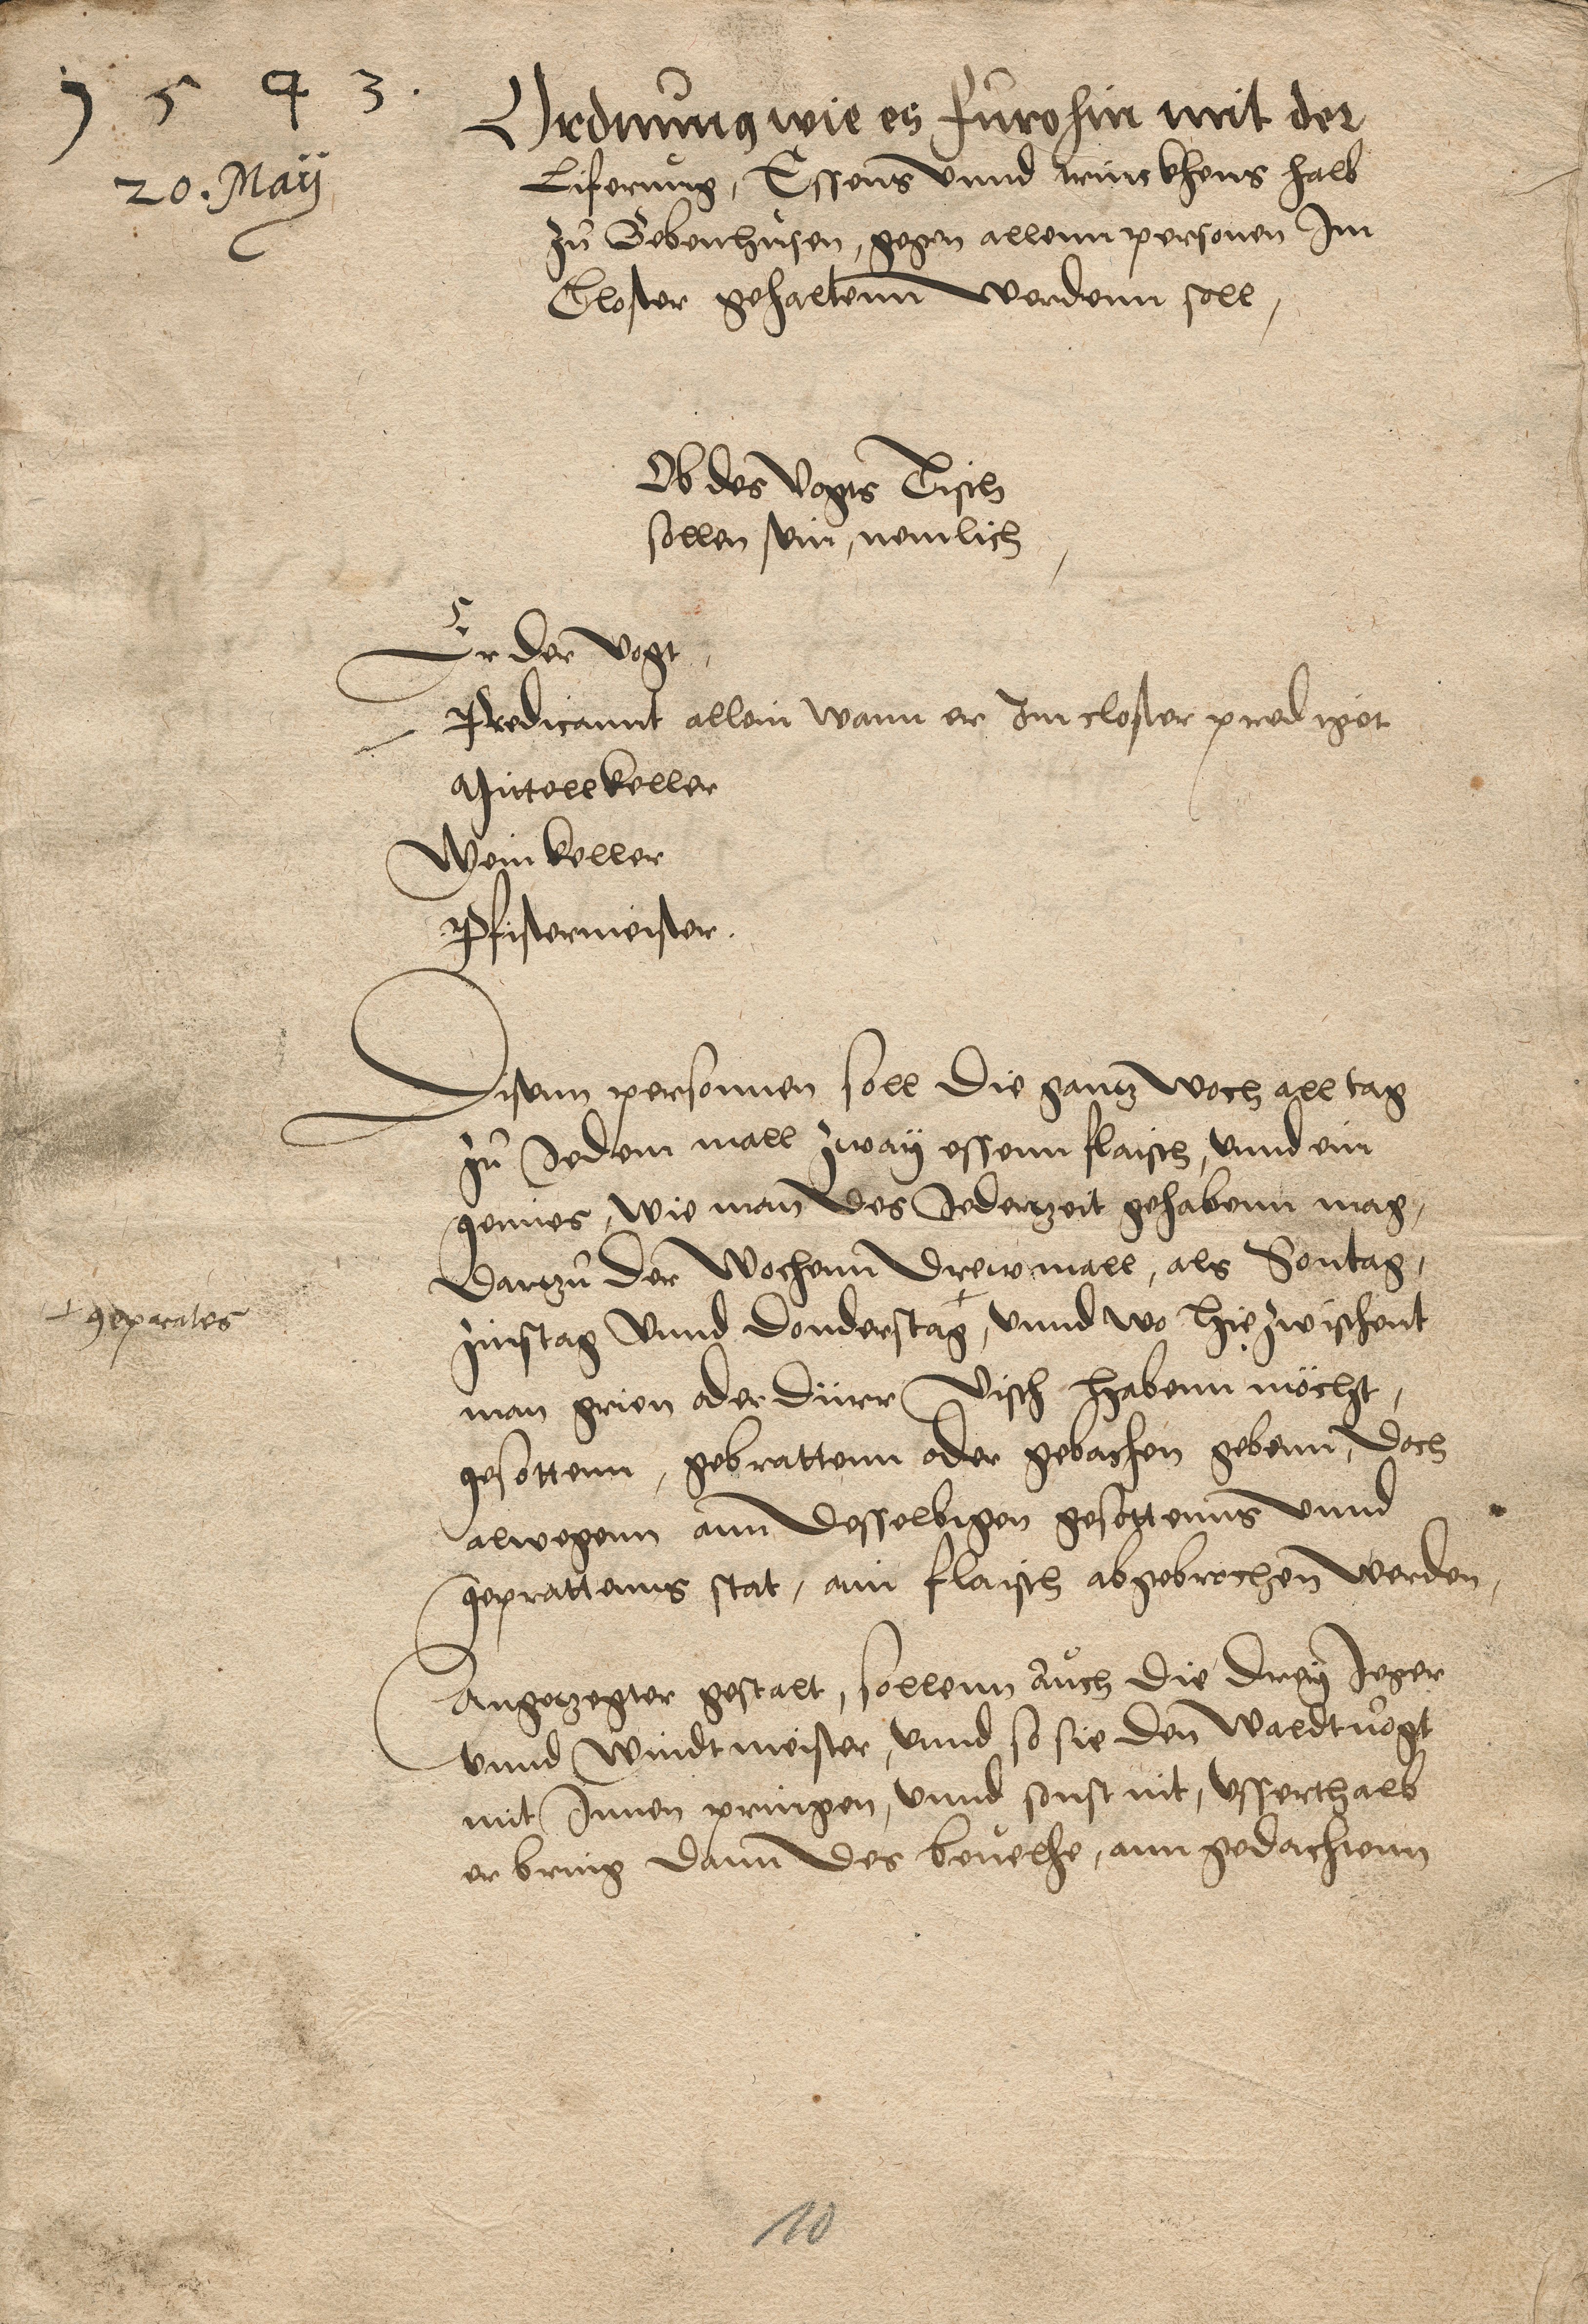 1 5 4 3.
20. Maÿ
Ordnung wie es furohin mit der
Liferung, Essens vnnd trinckhens halb
zu Bebenhusen, gegen allenn personen Im
Closter gehaltenn werdenn soll,
Ob des Vogts Tisch
sollen sein, nemlich,
Er der Vogt,
Predicannt allein wann er Im closter prediget
Mittellkeller
Weinkeller
Pfistermeister.
Disenn personnen soll die gantz woch all tag
zu Jedem mall zwaÿ essenn flaisch, vnnd ein
gemies, wie man des Jederzeit gehabenn mag,
Dartzu der Wochenn Drew mall, als Sontag,
Zinstag Vnnd Donderstag +, vnnd wo hie zwischent
+ geprates
man grien oder dürr Visch habenn möcht,
gesottenn, gebrattenn oder gebachen gebenn, doch
alwegenn ann desselbigen gesottenns vnnd
geprattenns stat, ain flaisch abgebrochen werden,
Angezegter gestalt, sollenn Auch die dreÿ Jeger
vnnd Windtmeister, vnnd so sie den Waldtvogt
mit Innen pringen, vnnd sonst nit, vsserthalb
er bring dann des beuelhe, ann gedachtenn
10